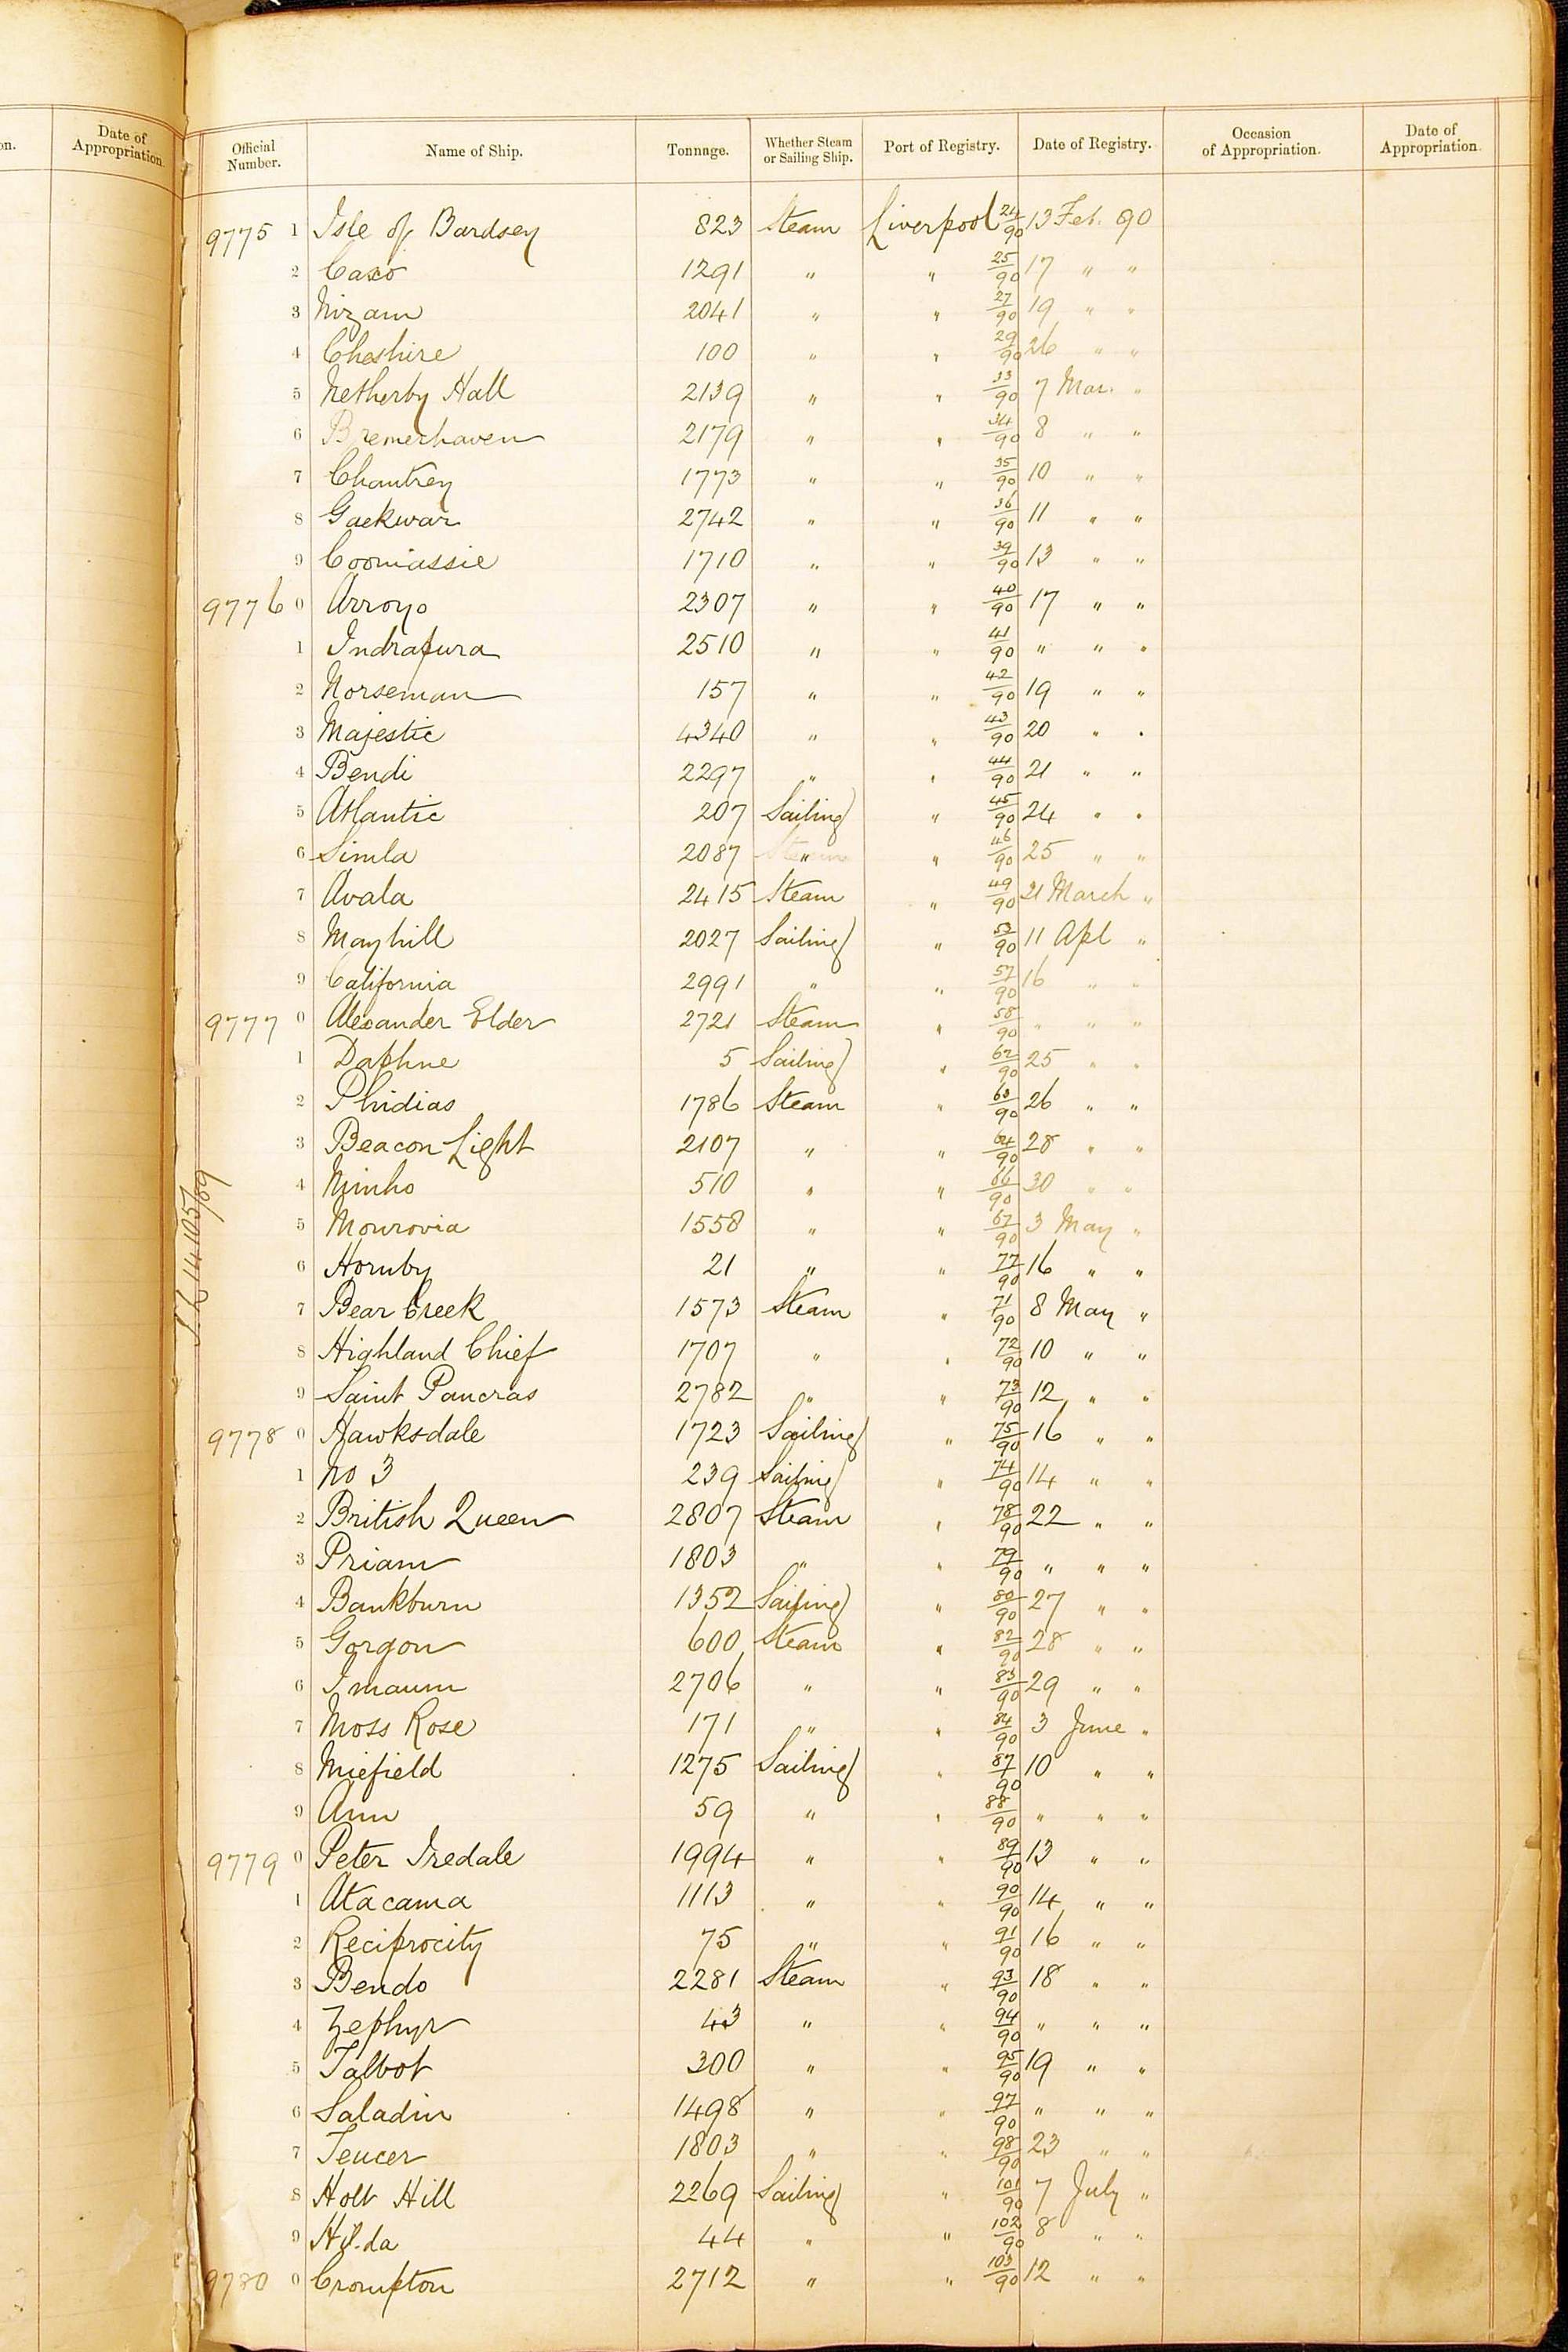 on.
Date of Appropriation.
Official Number. Name of Ship. Tonnage. Whether Steam or Sailing Ship. Port of Registry. Date of Registry. Occasion of Appropriation. Date of Appropriation.
9775 1 Isle of Bardsey 823 Steam Liverpool 24/90 13 Feb. 90
2 Caxo 1291 " " 25/90 17 " "
3 Nizam 2041 " " 27/90 19 " "
4 Cheshire 100 " " 29/90 26 " "
5 Netherby Hall 2139 " " 33/90 7 Mar. "
6 Bremerhaven 2179 " " 34/90 8 " "
7 Chantrey 1773 " " 35/90 10 " "
8 Gaekwar 2742 " " 36/90 11 " "
9 Coomassie 1710 " " 39/90 13 " "
9776 0 Arroyo 2307 " " 40/90 17 " "
1 Indrapura 2510 " " 41/90 " " "
2 Norseman 157 " " 42/90 19 " "
3 Majestic 4340 " " 43/90 20 " "
4 Bendi 2297 " " 44/90 21 " "
5 Atlantic 207 Sailing " 45/90 24 " "
6 Simla 2087 " " 46/90 25 " "
7 Avala 2415 Steam " 49/90 21 March "
8 Mayhill 2027 Sailing " 53/90 11 Apl "
9 California 2991 " " 57/90 16 " "
9777 0 Alexander Elder 2721 Steam " 58/90 " " "
1 Daphne 5 Sailing " 62/90 25 " "
2 Phidias 1786 Steam " 63/90 26 " "
3 Beacon Light 2107 " " 64/90 28 " "
4 Minho 510 " " 66/90 30 " "
5 Monrovia 1558 " " 67/90 3 May "
6 Hornby 21 " " 77/90 16 " "
7 Bear Creek 1573 Steam " 71/90 8 May "
8 Highland Chief 1707 " " 72/90 10 " "
9 Saint Pancras 2782 " " 73/90 12 " "
9778 0 Hawksdale 1723 Sailing " 75/90 16 " "
1 No 3 239 Sailing " 74/90 14 " "
2 British Queen 2807 Steam " 78/90 22 " "
3 Priam 1803 " " 79/90 " " "
4 Bankburn 1352 Sailing " 80/90 27 " "
5 Gorgon 600 Steam " 82/90 28 " "
6 Imaum 2706 " " 83/90 29 " "
7 Moss Rose 171 " " 84/90 3 June "
8 Miefield 1275 Sailing " 87/90 10 " "
9 Ann 59 " " 88/90 " " "
9779 0 Peter Iredale 1994 " " 89/90 13 " "
1 Atacama 1113 " " 90/90 14 " "
2 Reciprocity 75 " " 91/90 16 " "
3 Bendo 2281 Steam " 93/90 18 " "
4 Zephyr 43 " " 94/90 " " "
5 Talbot 300 " " 95/90 19 " "
6 Saladin 1498 " " 97/90 " " "
7 Teucer 1803 " " 98/90 23 " "
8 Holt Hill 2269 Sailing " 101/90 7 July "
9 Hilda 44 " " 102/90 8 " "
9780 0 Crompton 2712 " " 103/90 12 " "